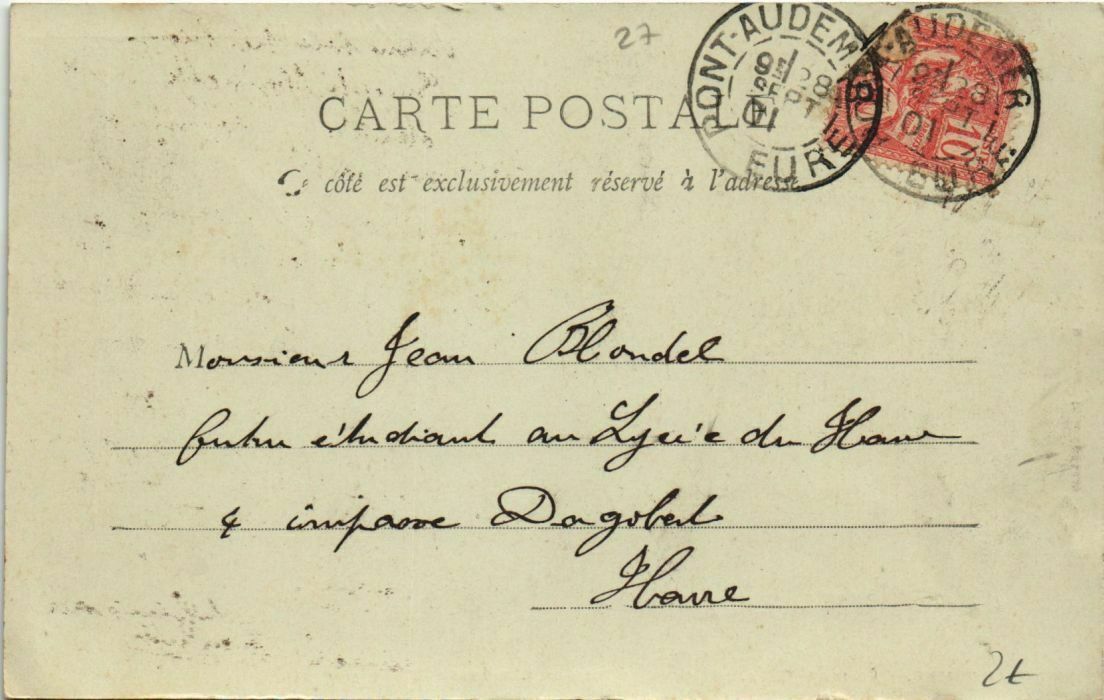 27
CARTE POSTALE
Ce côté est exclusivement réservé à l'adresse
PONT-AUDEMER
9E
28
SEPT
01
EURE
10
PONT-AUDEMER
28
SEPT
01
EURE
Monsieur Jean Blondel
futur étudiant au Lycée du Havre
4 impasse Dagobert
Havre
2t